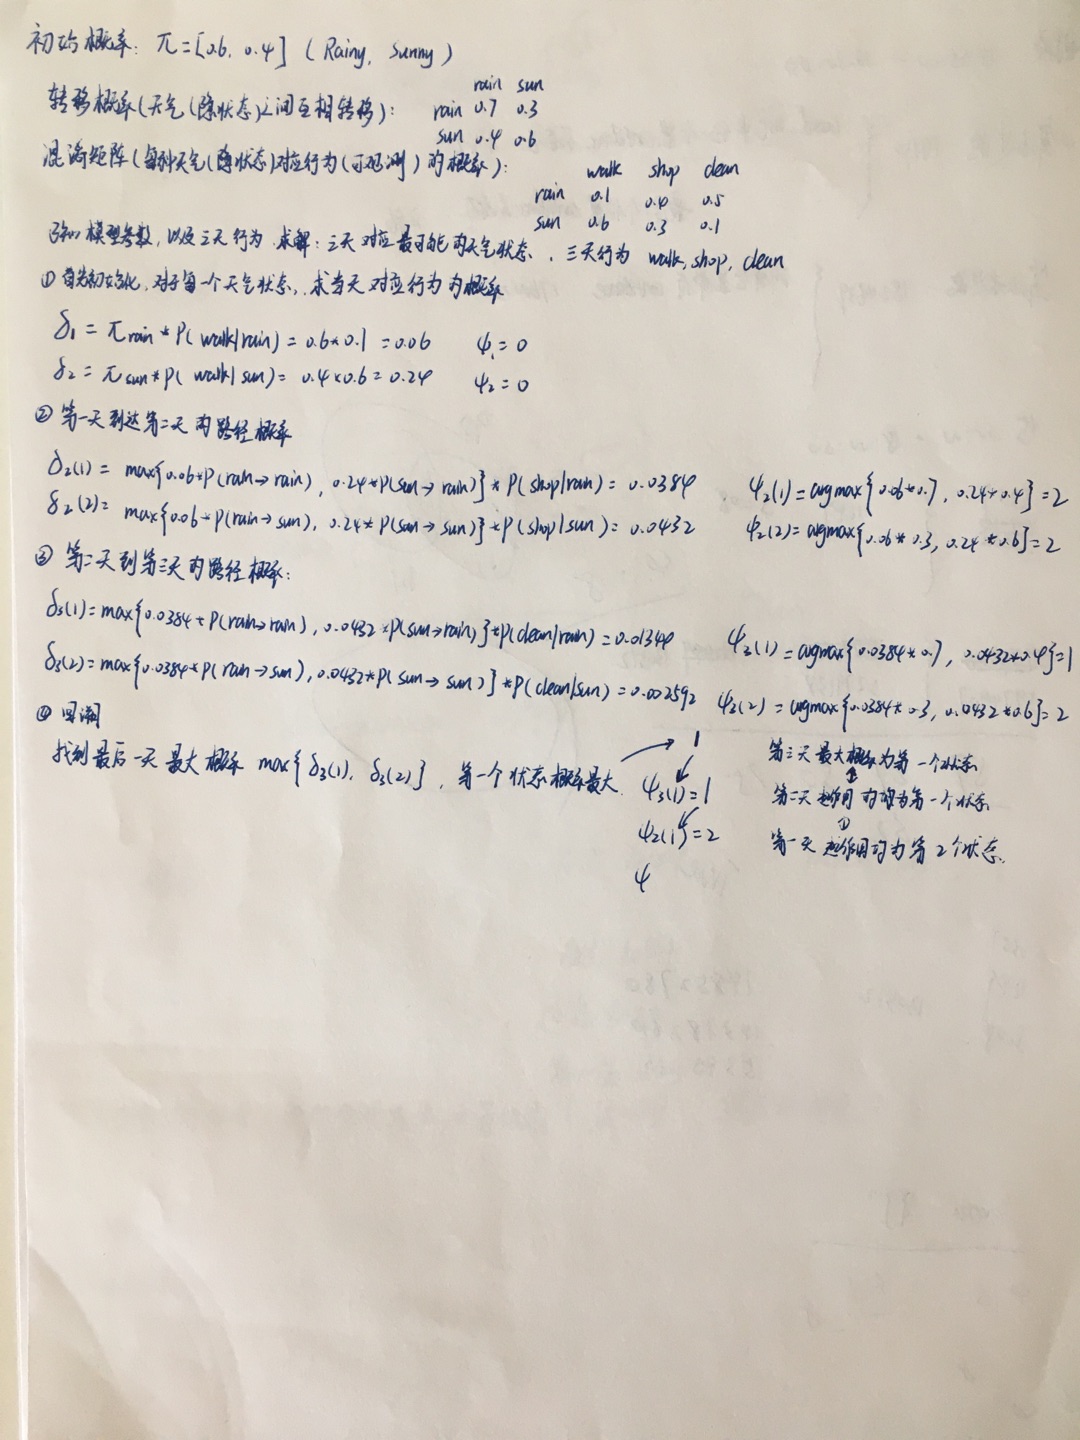 初始概率: π=[0.6, 0.4] (Rainy, Sunny)
rain sun
转移概率(天气(隐状态)之间互相转移): rain 0.7 0.3
sun 0.4 0.6
混淆矩阵(每种天气(隐状态)对应行为(可观测)的概率): walk shop clean
rain 0.1 0.4 0.5
sun 0.6 0.3 0.1
已知模型参数, 以及三天行为 求解: 三天对应最可能的天气状态. 三天行为 walk, shop, clean
① 首先初始化, 对于每一个天气状态, 求当天对应行为的概率
δ₁ = π rain * P(walk|rain) = 0.6*0.1 = 0.06 ψ₁ = 0
δ₂ = π sun * P(walk|sun) = 0.4×0.6 = 0.24 ψ₂ = 0
② 第一天到达第二天的路径概率
δ₂(1) = max{0.06*P(rain→rain), 0.24*P(sun→rain)} * P(shop|rain) = 0.0384 ψ₂(1) = argmax{0.06*0.7, 0.24*0.4} = 2
δ₂(2) = max{0.06*P(rain→sun), 0.24*P(sun→sun)} * P(shop|sun) = 0.0432 ψ₂(2) = argmax{0.06*0.3, 0.24*0.6} = 2
③ 第二天到第三天的路径概率:
δ₃(1) = max{0.0384*P(rain→rain), 0.0432*P(sun→rain)} * P(clean|rain) = 0.01344 ψ₃(1) = argmax{0.0384*0.7, 0.0432*0.4} = 1
δ₃(2) = max{0.0384*P(rain→sun), 0.0432*P(sun→sun)} * P(clean|sun) = 0.002592 ψ₃(2) = argmax{0.0384*0.3, 0.0432*0.6} = 2
④ 回溯
找到最后一天最大概率 max{δ₃(1), δ₃(2)}, 第一个状态概率最大. → 1 第三天最大概率为第一个状态
ψ₃(1) = 1 第二天起作用的为第一个状态
ψ₂(1) = 2 第一天起作用的为第2个状态.
ψ